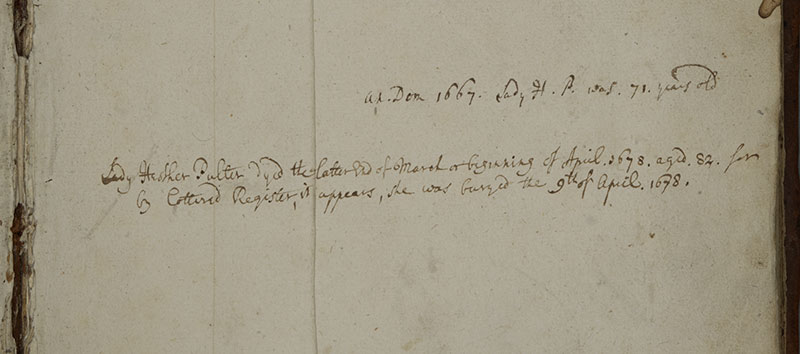 an. Dom 1667. Lady H. P. was. 71. years old
Lady Hesther Pulter Dyed the latter End of March or beginning of April. 1678. aged. 82. for
by Cottered Register, it appears, she was buryed the 9th of April. 1678.